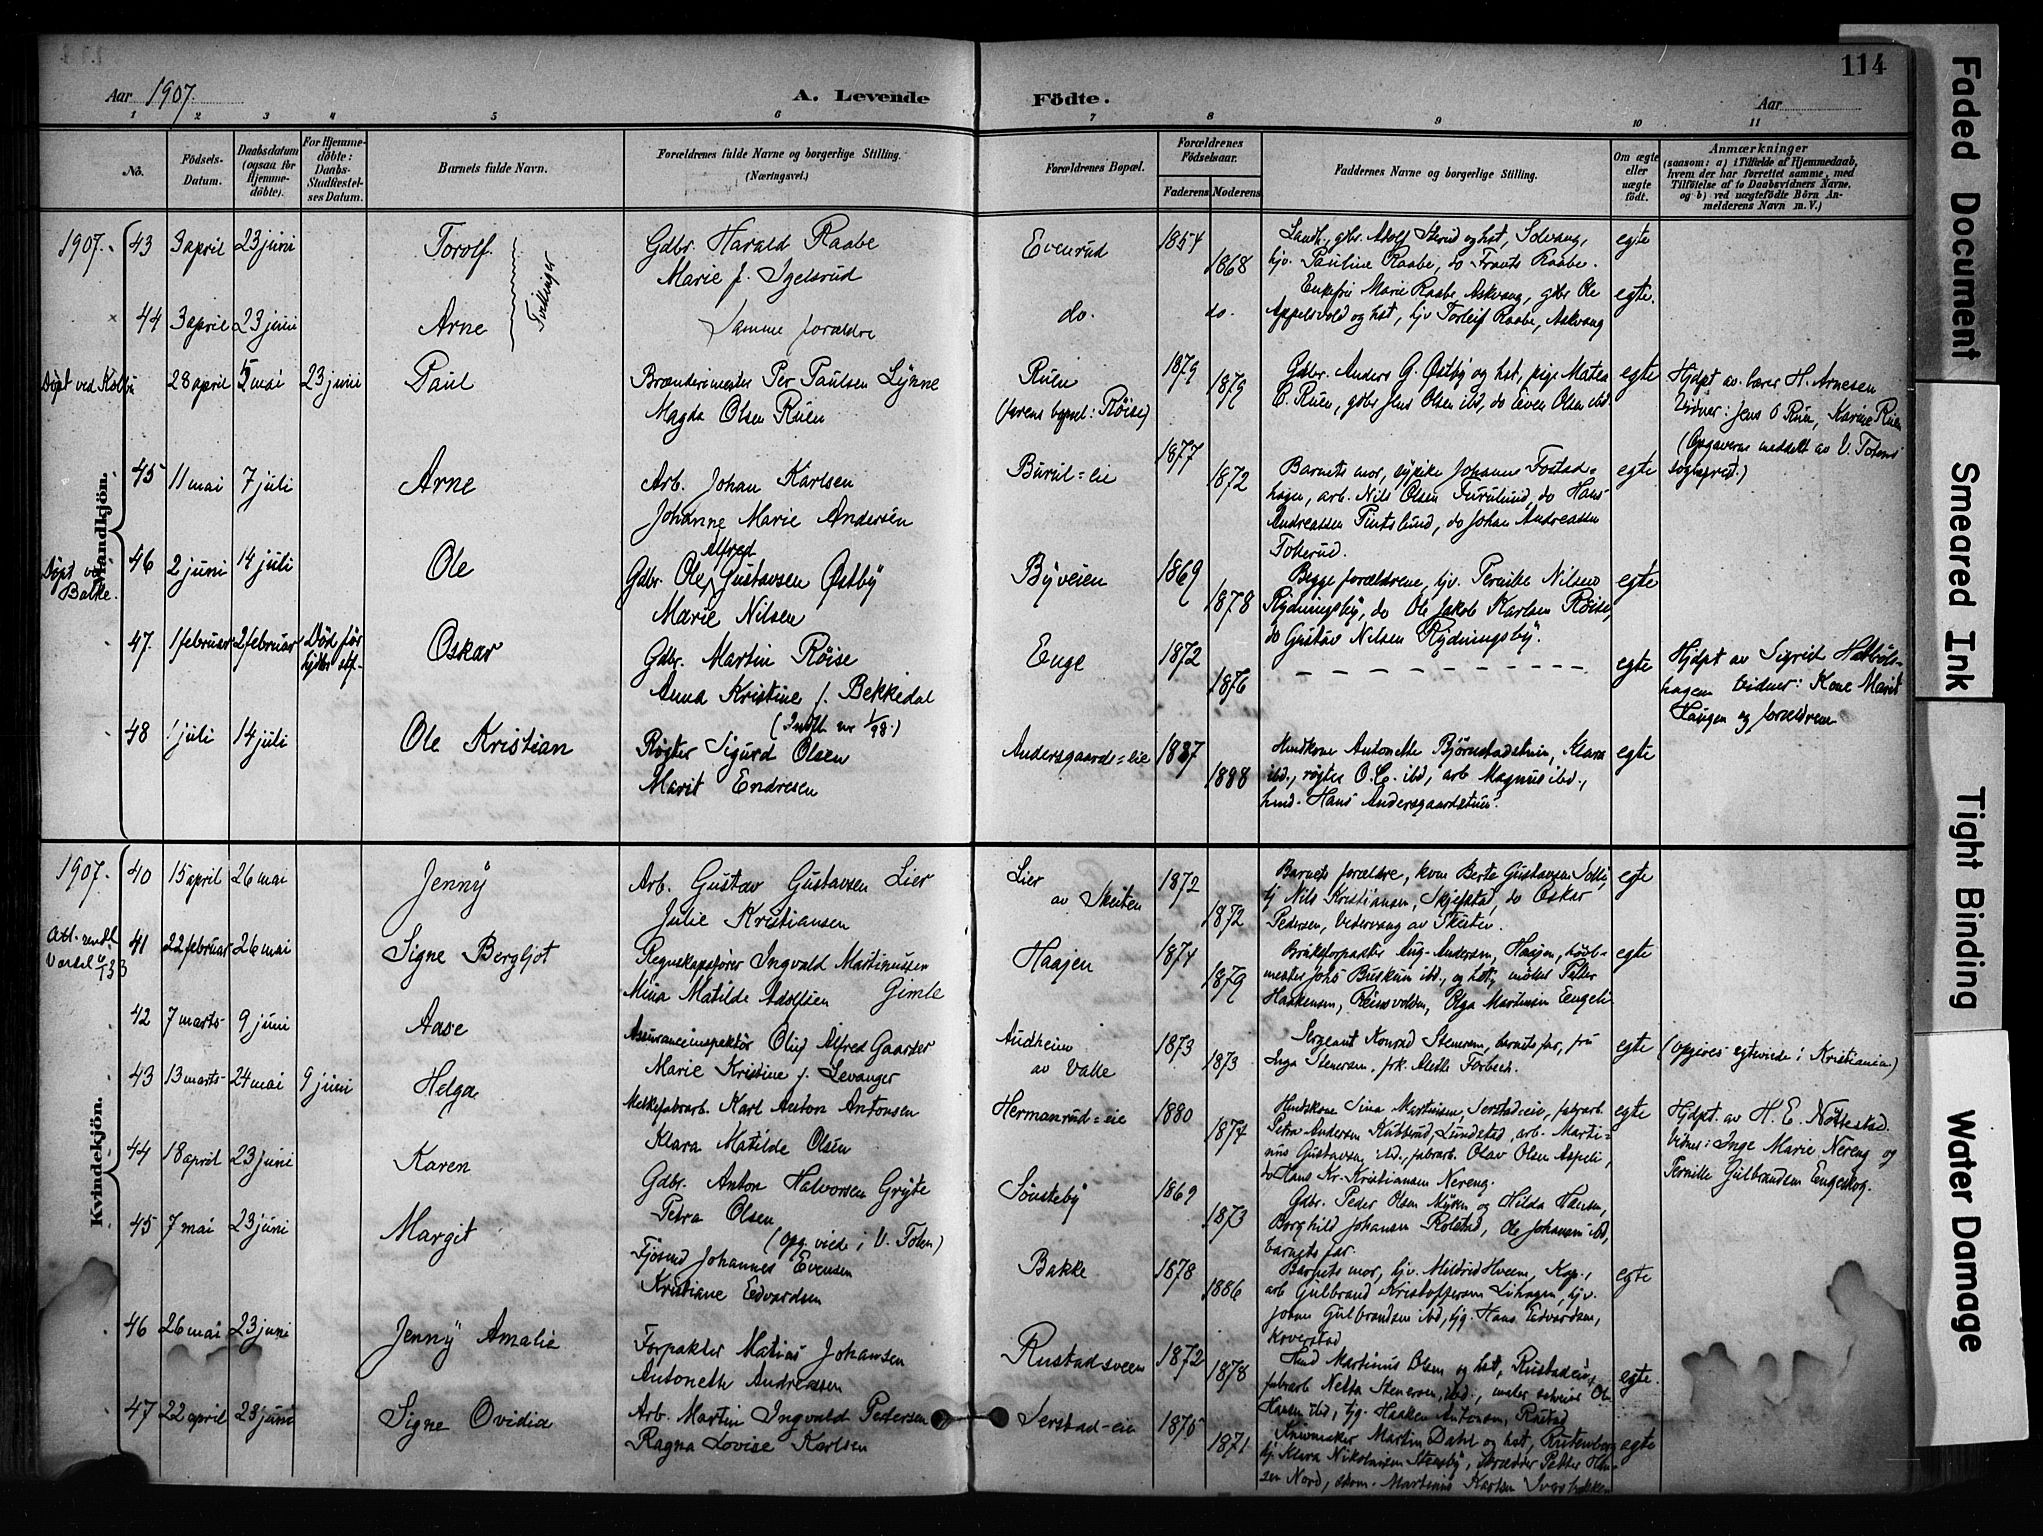 114
Aar 1907.
A. Levende Födte.
Aar
1 2 3 4 5 6 7 8 9 10 11
No.
Födsels-Datum.
Daabsdatum (ogsaa for Hjemmedöbte).
For Hjemmedöbte: Daabs-Stadfæstelses Datum.
Barnets fulde Navn.
Forældrenes fulde Navne og borgerlige Stilling. (Næringsvei.)
Forældrenes Bopæl.
Forældrenes Födselsaar.
Faderens Moderens
Faddernes Navne og borgerlige Stilling.
Om ægte eller uægte födt.
Anmærkninger
(saasom: a) i Tilfælde af Hjemmedaab, hvem der har forrettet samme, med Tilföielse af to Daabsvidners Navne, og b) ved uægtefödte Börn Anmelderens Navn m. V.)
Mandkjön.
1907. 43 3 april 23 juni Torolf Tvillinger
Gdbr. Harald Raabe
Marie f. Igelsrud
Evenrud 1854 1868
Landh., gbr. Adolf Sterud og hst, Solvang,
hjv. Pauline Raabe, do Frants Raabe.
egte
44 3 april 23 juni Arne
Samme forældre
do. do.
Enkefru Marie Raabe, Askvang, gbr Ole
Appelsvold og hst, hjv Torleif Raabe, Askvang
egte.
Døpt ved Kolbu 28 april 5 mai 23 juni Paul
Brænderimester Per Paulsen Lynne
Magda Olsen Ruen
Ruen
(farens bopæl: Røise)
1879 1879
Gdbr. Anders G. Østby og hst, pige Matea
C. Ruen, gdbr Jens Olsen ibd, do Even Olsen ibd
egte
Hjdpt av lærer H. Arnesen
Vidner: Jens O Ruen, Karine Ruen
(Opgaverne meddelt av V. Totens
sogneprest.)
45 11 mai 7 juli Arne
Arb. Johan Karlsen
Johanne Marie Andersen
Burul=eie 1877 1872
Barnets mor, sypike Johanne Fostad=
hagen, arb. Nils Olsen Furulund, do Hans
Andreassen Tintslund, do Johan Andreassen
Tokerud.
egte
Døpt ved Balke. 46 2 juni 14 juli Ole
Gdbr. Ole Alfred Gustavsen Østby
Marie Nilsen
Byveien 1869 1878
Begge forældrene, hjv. Pernille Nilsen
Rydningsby, do Ole Jakob Karlsen Røise,
do Gustav Nilsen Rydningsby.
egte
47. 1 februar 2 februar Død før Oskar
Gdbr. Martin Røise
Anna Kristine f. Bekkedal
Enge 1872 1876
egte
Hjdpt av Sigrid
hagen Vidner: Kone Marit
Haugen og forældrene
48 1 juli 14 juli Ole Kristian
Røgter Sigurd Olsen
Marit Endresen
Andersgaards=eie 1887 1888
Husdkone Antonette Bjørnstadstuen, Klara
ibd., røgter O.C. ibd, arb Magnus ibd.,
husd. Hans Andersgaardstuen.
egte
Kvindekjön.
1907. 40 15 april 26 mai Jenny
Arb. Gustav Gustavsen Lier
Julie Kristiansen
Lier
av Skuten
1872 1872
Barnets forældre, kone Berte Gustavsen
Nils Kristiansen, Skjelstad, do Oskar
Pedersen, av
egte
41 22 februar 26 mai Signe Bergljot
Regnskapsfører Ingvald Martinussen
Mina Matilde Adolfsen Gimle
Haajen 1874 1879
Bruksforpakter Aug. Andersen, Haajen,
mester Johs Buskum ibd., og hst, møller Petter
Haakensen, Reinsvolden, Olga Martinsen Engeli
egte
42 7 marts 9 juni Aase
Assuranceinspektør Oluf Alfred Gaarder
Marie Kristine f. Levanger
Audheim
av Valle
1873 1873
Sergeant Konrad Stenersen, barnets far, fru
Inga Stenersen, frk. Alette Forbech.
egte
(opgives egteviede i Kristiania)
43 13 marts 24 mai 9 juni Helga
Melkefabarb. Karl Anton Antonsen
Klara Matilde Olsen
Hermanrud=eie 1880 1874
Husdkone Sina Martinsen, Serstadeie, fabarb.
Petra Andersen Lundstad, arb. Marti=
nius Gustavsen, ibd., fabarb. Olav Olsen Aspeli,
do Hans Kr. Kristiansen Nereng.
egte
Hjdpt av H. E. Nøttestad.
Vidner: Inge Marie Nereng og
Pernille Gulbrandsen Engeskog.
44 18 april 23 juni Karen
Gdbr. Anton Halvorsen Gryte
Petra Olsen
(opg. viede i V. Toten)
Sønsteby 1869 1873
Gdbr. Peder Olsen og Hilda Hansen,
Borghild Johansen Rolstad, Ole Johansen ibd,
barnets far.
45 7 mai 23 juni Margit
Fjøsmd Johannes Evensen
Kristiane Edvardsen
Bakke 1878 1886
Barnets mor, hjv. Mildrid Hveem, Kap,
arb Gulbrand Kristoffersen Lihagen, hjv.
Johan Gulbrandsen ibd, tjg. Hans Edvardsen,
Koverstad
egte
46 26 mai 23 juni Jenny Amalie
Forpakter Matias Johansen
Antonette Andreassen
Rustadsveen 1872 1878
Husd Martinus Olsen og hst, Rustadeie,
fabarb Netta Stenersen, ibd., Ole
Hansen ibd, tjg. Haaken Antonsen, Rustad
egte.
47 22 april 23 juni Signe Ovidia
Arb. Martin Ingvald Pedersen
Ragna Lovise Karlsen
Serstad=eie 1875 1871
Martin Dahl og hst, Rustenberg
hj. Klara Nikolaisen Stensby, skrædder Petter Han=
sen Nord, skom. Martinus Karlsen
egte
Faded Document
Smeared Ink
Tight Binding
Water Damage